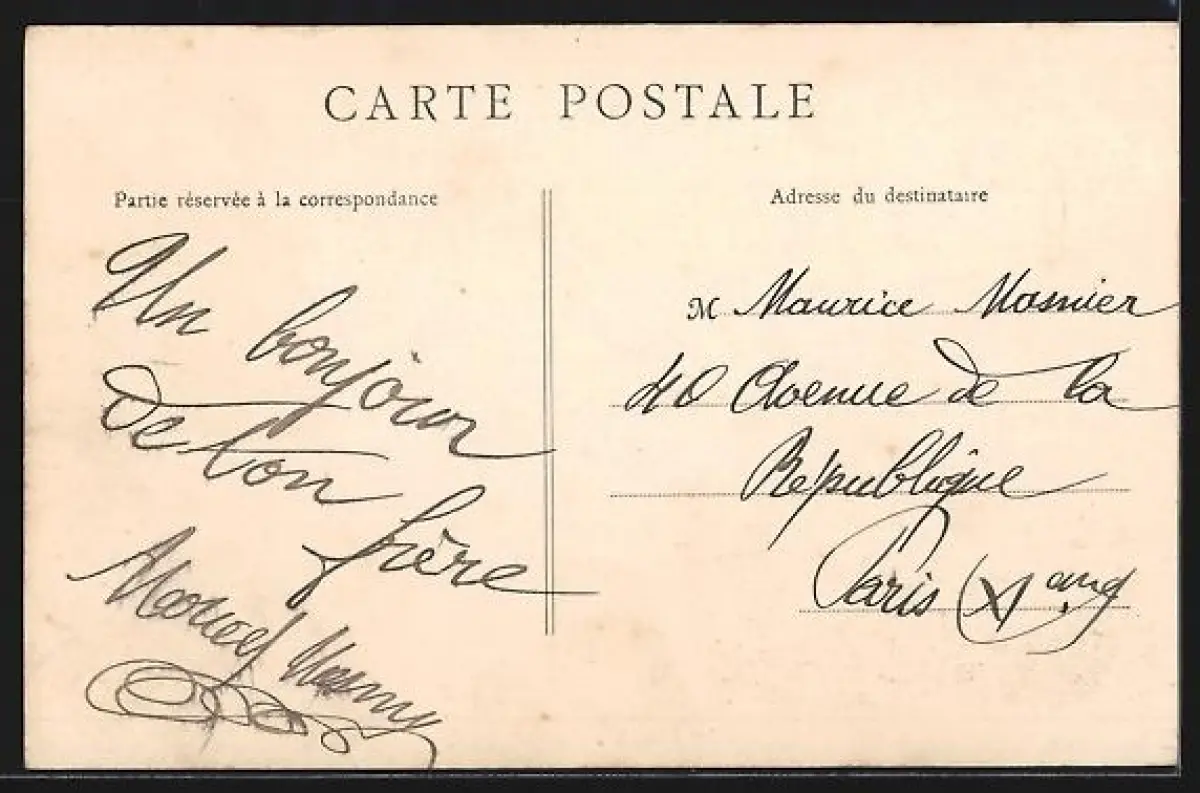 CARTE POSTALE
Partie réservée à la correspondance
Un bonjour
De ton
frère
Marcel
Adresse du destinataire
M Maurice Masnier
40 Avenue de la
République
Paris (XI arr)